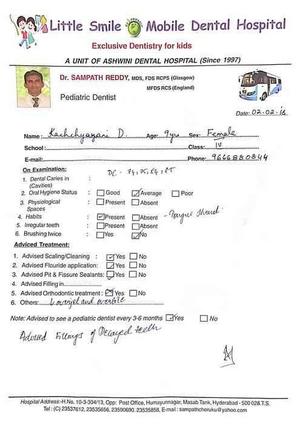 Little Smile Mobile Dental Hospital
Exclusive Dentistry for kids
A UNIT OF ASHWINI DENTAL HOSPITAL (Since 1997)
Dr. SAMPATH REDDY, MDS, FDS RCPS (Glasgow)
MFDS RCS (England)
Pediatric Dentist
Date: 02-02-
Name: D. Age: 9yrs Sex: Female
School: Class: IV
E-mail: Phone:
On Examination:
1. Dental Caries in : DC -
(Cavities)
2. Oral Hygiene Status : Good Average Poor
3. Physiological : Present Absent
Spaces
4. Habits : Present Absent - Tongue thrust
5. Irregular teeth : Present Absent
6. Brushing twice : Yes No
Adviced Treatment:
1. Advised Scaling/Cleaning : Yes No
2. Advised Flouride application: Yes No
3. Advised Pit & Fissure Sealants: Yes No
4. Advised Filling in
5. Advised Orthodontic treatment : Yes No
6. Others: and overbite
Note: Advised to see a pediatric dentist every 3-6 months Yes No
Advised fillings of Decayed teeth
Hospital Address:-H.No. 10-3-304/13, Opp: Post Office, Humayunnagar, Masab Tank, Hyderabad - 500 028.T.S.
(Tel:) 23537612, 23535656, 23590690, 23535858. E-mail : sampathchoruku@yahoo.com